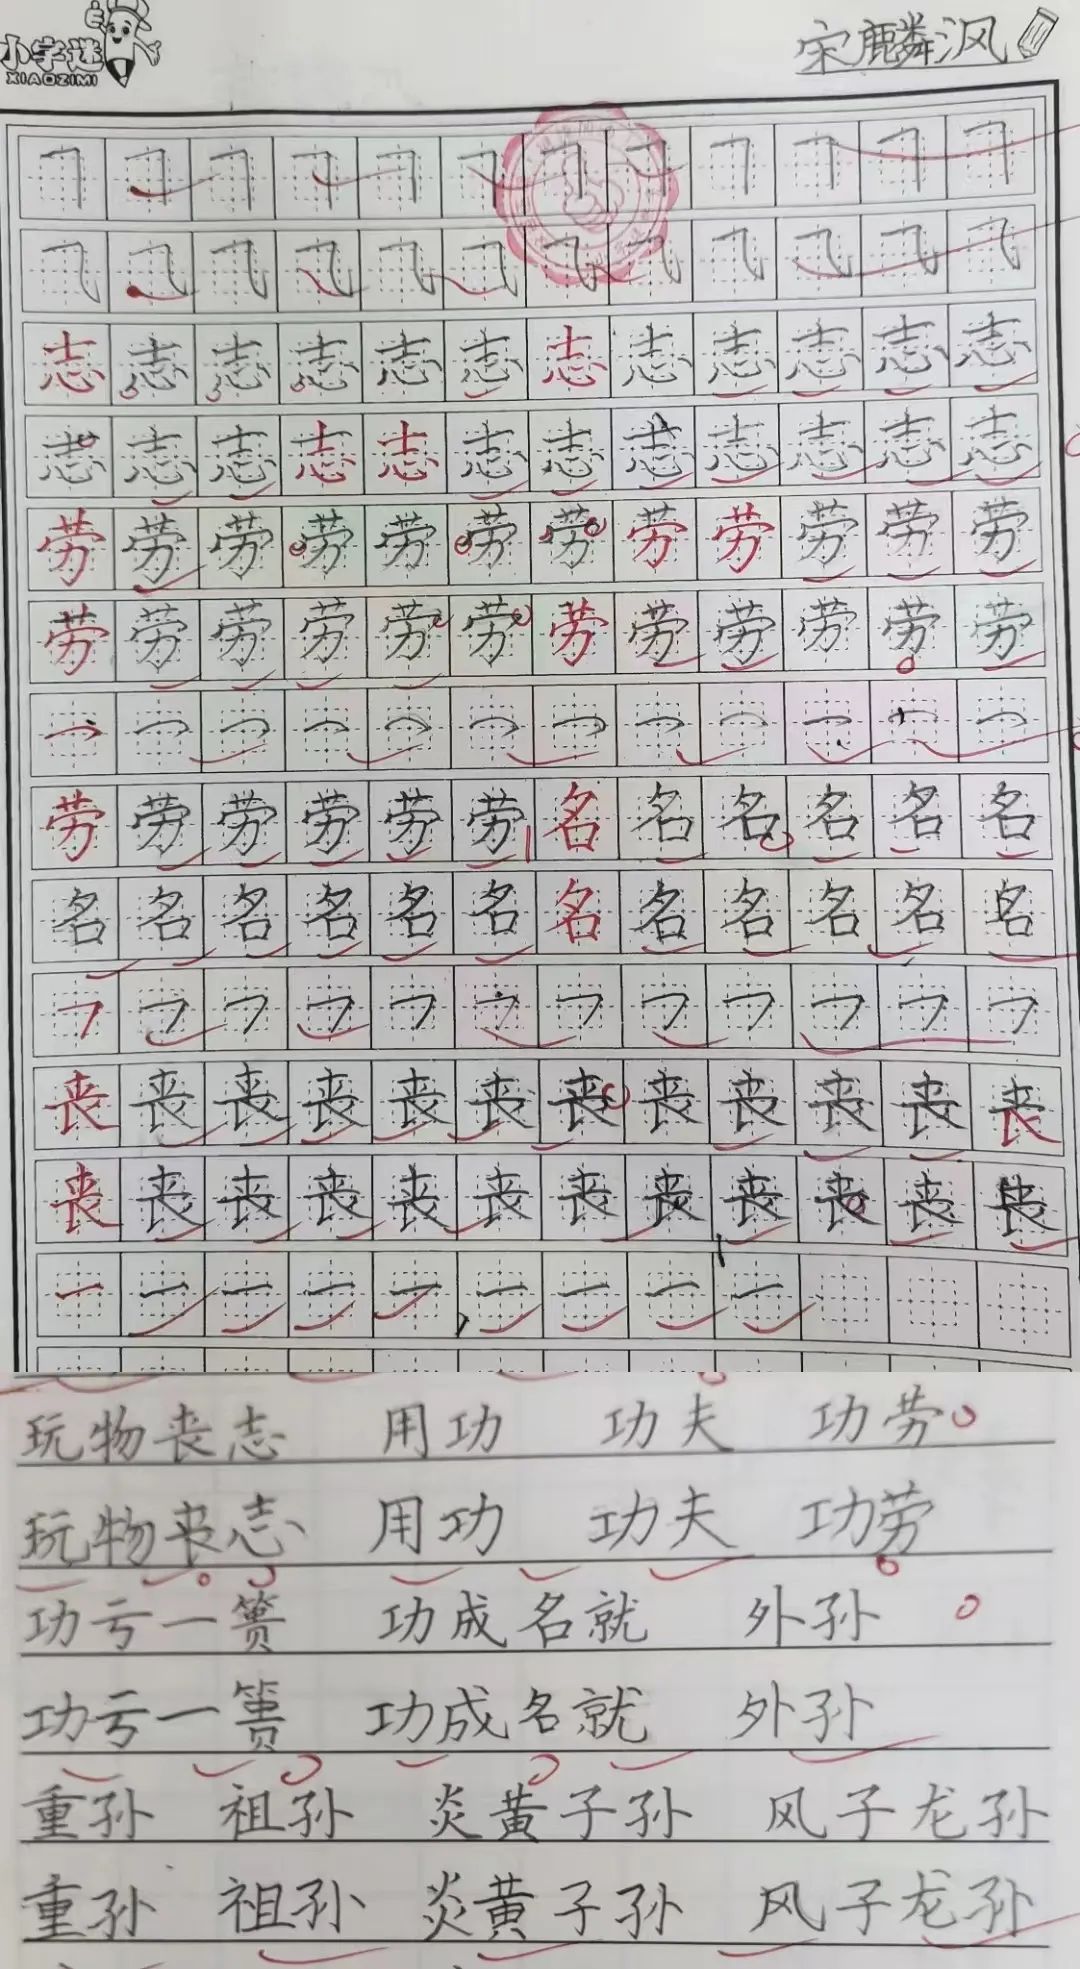 小字迷 宋麟沨
XIAOZIMI
㇆ ㇆ ㇆ ㇆ ㇆ ㇆ ㇆ ㇆ ㇆ ㇆ ㇆ ㇆
⺄ ⺄ ⺄ ⺄ ⺄ ⺄ ⺄ ⺄ ⺄ ⺄ ⺄ ⺄
志 志 志 志 志 志 志 志 志 志 志 志
志 志 志 志 志 志 志 志 志 志 志 志
劳 劳 劳 劳 劳 劳 劳 劳 劳 劳 劳 劳
劳 劳 劳 劳 劳 劳 劳 劳 劳 劳 劳 劳
冖 冖 冖 冖 冖 冖 冖 冖 冖 冖 冖 冖
劳 劳 劳 劳 劳 劳 名 名 名 名 名 名
名 名 名 名 名 名 名 名 名 名 名 名
㇇ ㇇ ㇇ ㇇ ㇇ ㇇ ㇇ ㇇ ㇇ ㇇ ㇇ ㇇
丧 丧 丧 丧 丧 丧 丧 丧 丧 丧 丧 丧
丧 丧 丧 丧 丧 丧 丧 丧 丧 丧 丧 丧
一 一 一 一 一 一 一 一 一
玩物丧志 用功 功夫 功劳
玩物丧志 用功 功夫 功劳
功亏一篑 功成名就 外孙
功亏一篑 功成名就 外孙
重孙 祖孙 炎黄子孙 风子龙孙
重孙 祖孙 炎黄子孙 风子龙孙